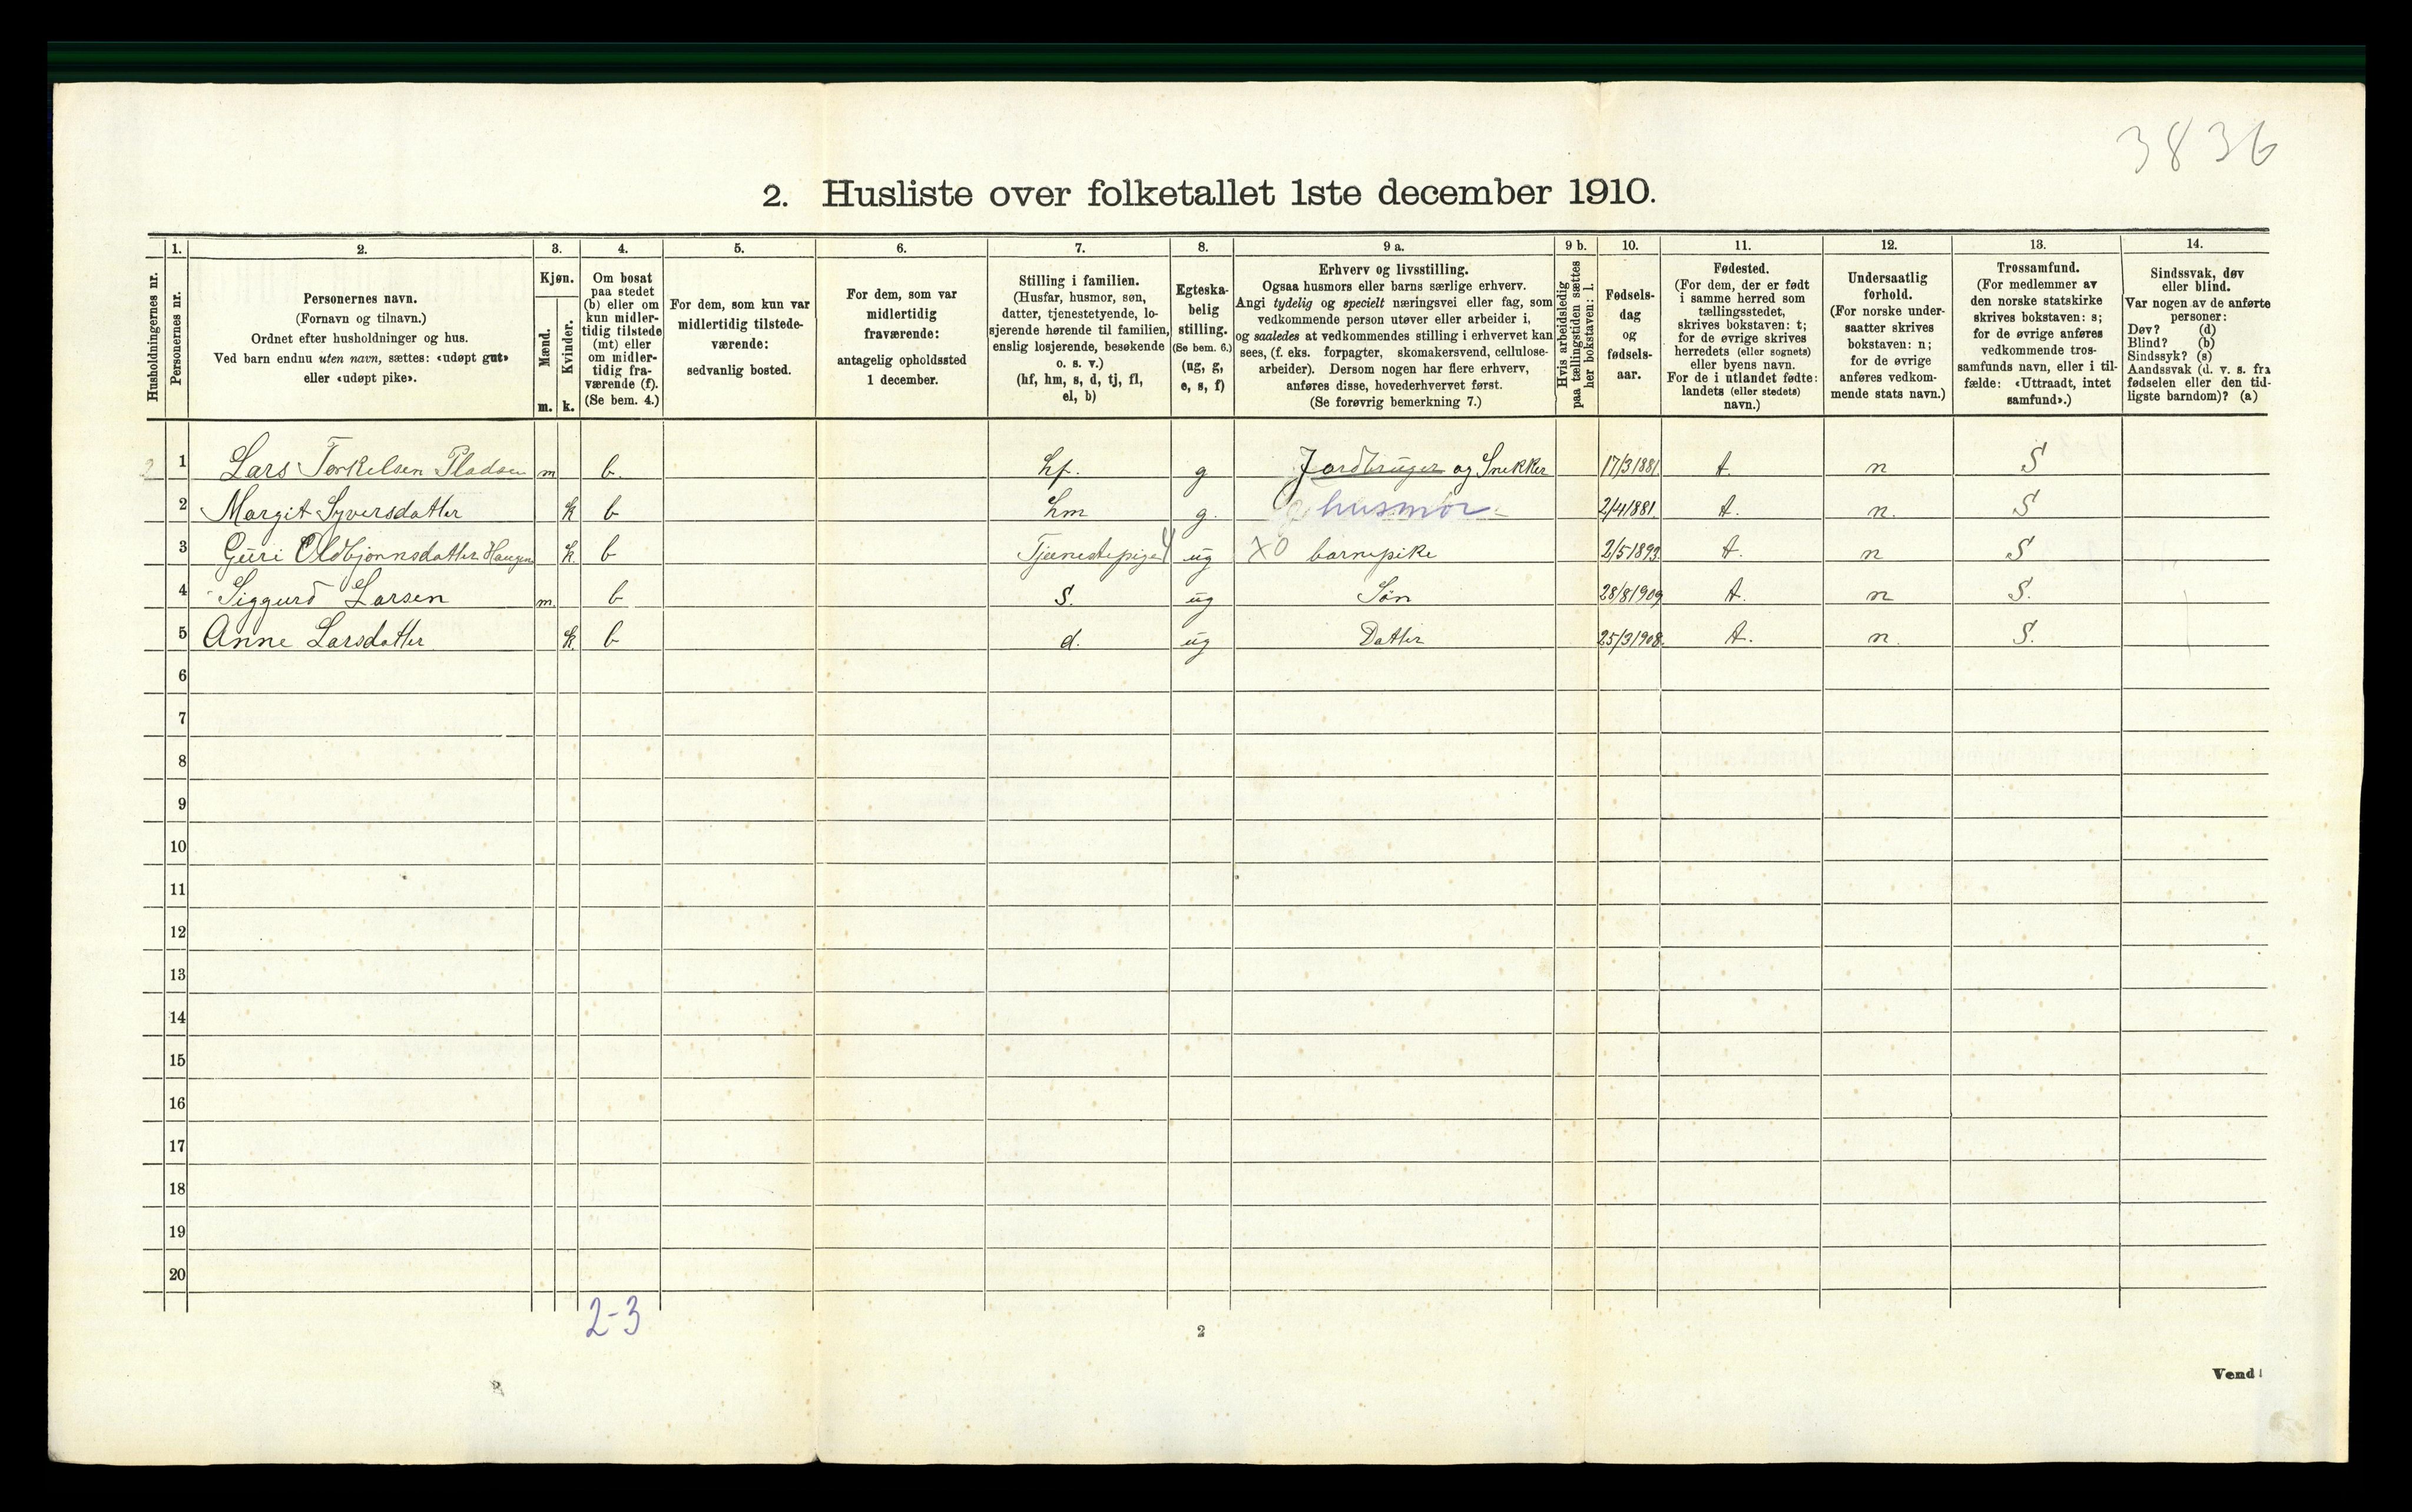 3836
2. Husliste over folketallet 1ste december 1910.
Husholdningernes nr.
1.
Personernes nr.
2.
Personernes navn.
(Fornavn og tilnavn.)
Ordnet efter husholdninger og hus.
Ved barn endnu uten navn, sættes: «udøpt gut»
eller «udøpt pike».
3.
Kjøn.
Mænd.
m.
Kvinder.
k.
4.
Om bosat
paa stedet
(b) eller om
kun midler-
tidig tilstede
(mt) eller
om midler-
tidig fra-
værende (f).
(Se bem. 4.)
5.
For dem, som kun var
midlertidig tilstede-
værende:
sedvanlig bosted.
6.
For dem, som var
midlertidig
fraværende:
antagelig opholdssted
1 december.
7.
Stilling i familien.
(Husfar, husmor, søn,
datter, tjenestetyende, lo-
sjerende hørende til familien,
enslig losjerende, besøkende
o. s. v.)
(hf, hm, s, d, tj, fl,
el, b)
8.
Egteska-
belig
stilling.
(Se bem. 6.)
(ug, g,
e, s, f)
9 a.
Erhverv og livsstilling.
Ogsaa husmors eller barns særlige erhverv.
Angi tydelig og specielt næringsvei eller fag, som
vedkommende person utøver eller arbeider i,
og saaledes at vedkommendes stilling i erhvervet kan
sees, (f. eks. forpagter, skomakersvend, cellulose-
arbeider). Dersom nogen har flere erhverv,
anføres disse, hovederhvervet først.
(Se forøvrig bemerkning 7.)
9 b.
Hvis arbeidsledig
paa tællingstiden sættes
her bokstaven: l.
10.
Fødsels-
dag
og
fødsels-
aar.
11.
Fødested.
(For dem, der er født
i samme herred som
tællingsstedet,
skrives bokstaven: t;
for de øvrige skrives
herredets (eller sognets)
eller byens navn.
For de i utlandet fødte:
landets (eller stedets)
navn.)
12.
Undersaatlig
forhold.
(For norske under-
saatter skrives
bokstaven: n;
for de øvrige
anføres vedkom-
mende stats navn.)
13.
Trossamfund.
(For medlemmer av
den norske statskirke
skrives bokstaven: s;
for de øvrige anføres
vedkommende tros-
samfunds navn, eller i til-
fælde: «Uttraadt, intet
samfund».)
14.
Sindssvak, døv
eller blind.
Var nogen av de anførte
personer:
Døv? (d)
Blind? (b)
Sindssyk? (s)
Aandssvak (d. v. s. fra
fødselen eller den tid-
ligste barndom)? (a)
2 1 Lars Torkelsen Pladsen m b. hf. g Jordbruger og Snekker 17/3 1881. t. n S
2 Margit Syversdatter k b hm g. husmor 2/4 1881. t. n. S
3 Guri Oldbjønnsdatter Haugen k. b Tjenestepige ug XO barnepike 2/5 1893. t. n S
4 Siggurd Larsen m. b S. ug Søn 28/8 1909 t. n S.
5 Anne Larsdatter k. b d. ug Datter 25/3 1908. t. n. S.
6
7
8
9
10
11
12
13
14
15
16
17
18
19
20
2-3
2
Vend!